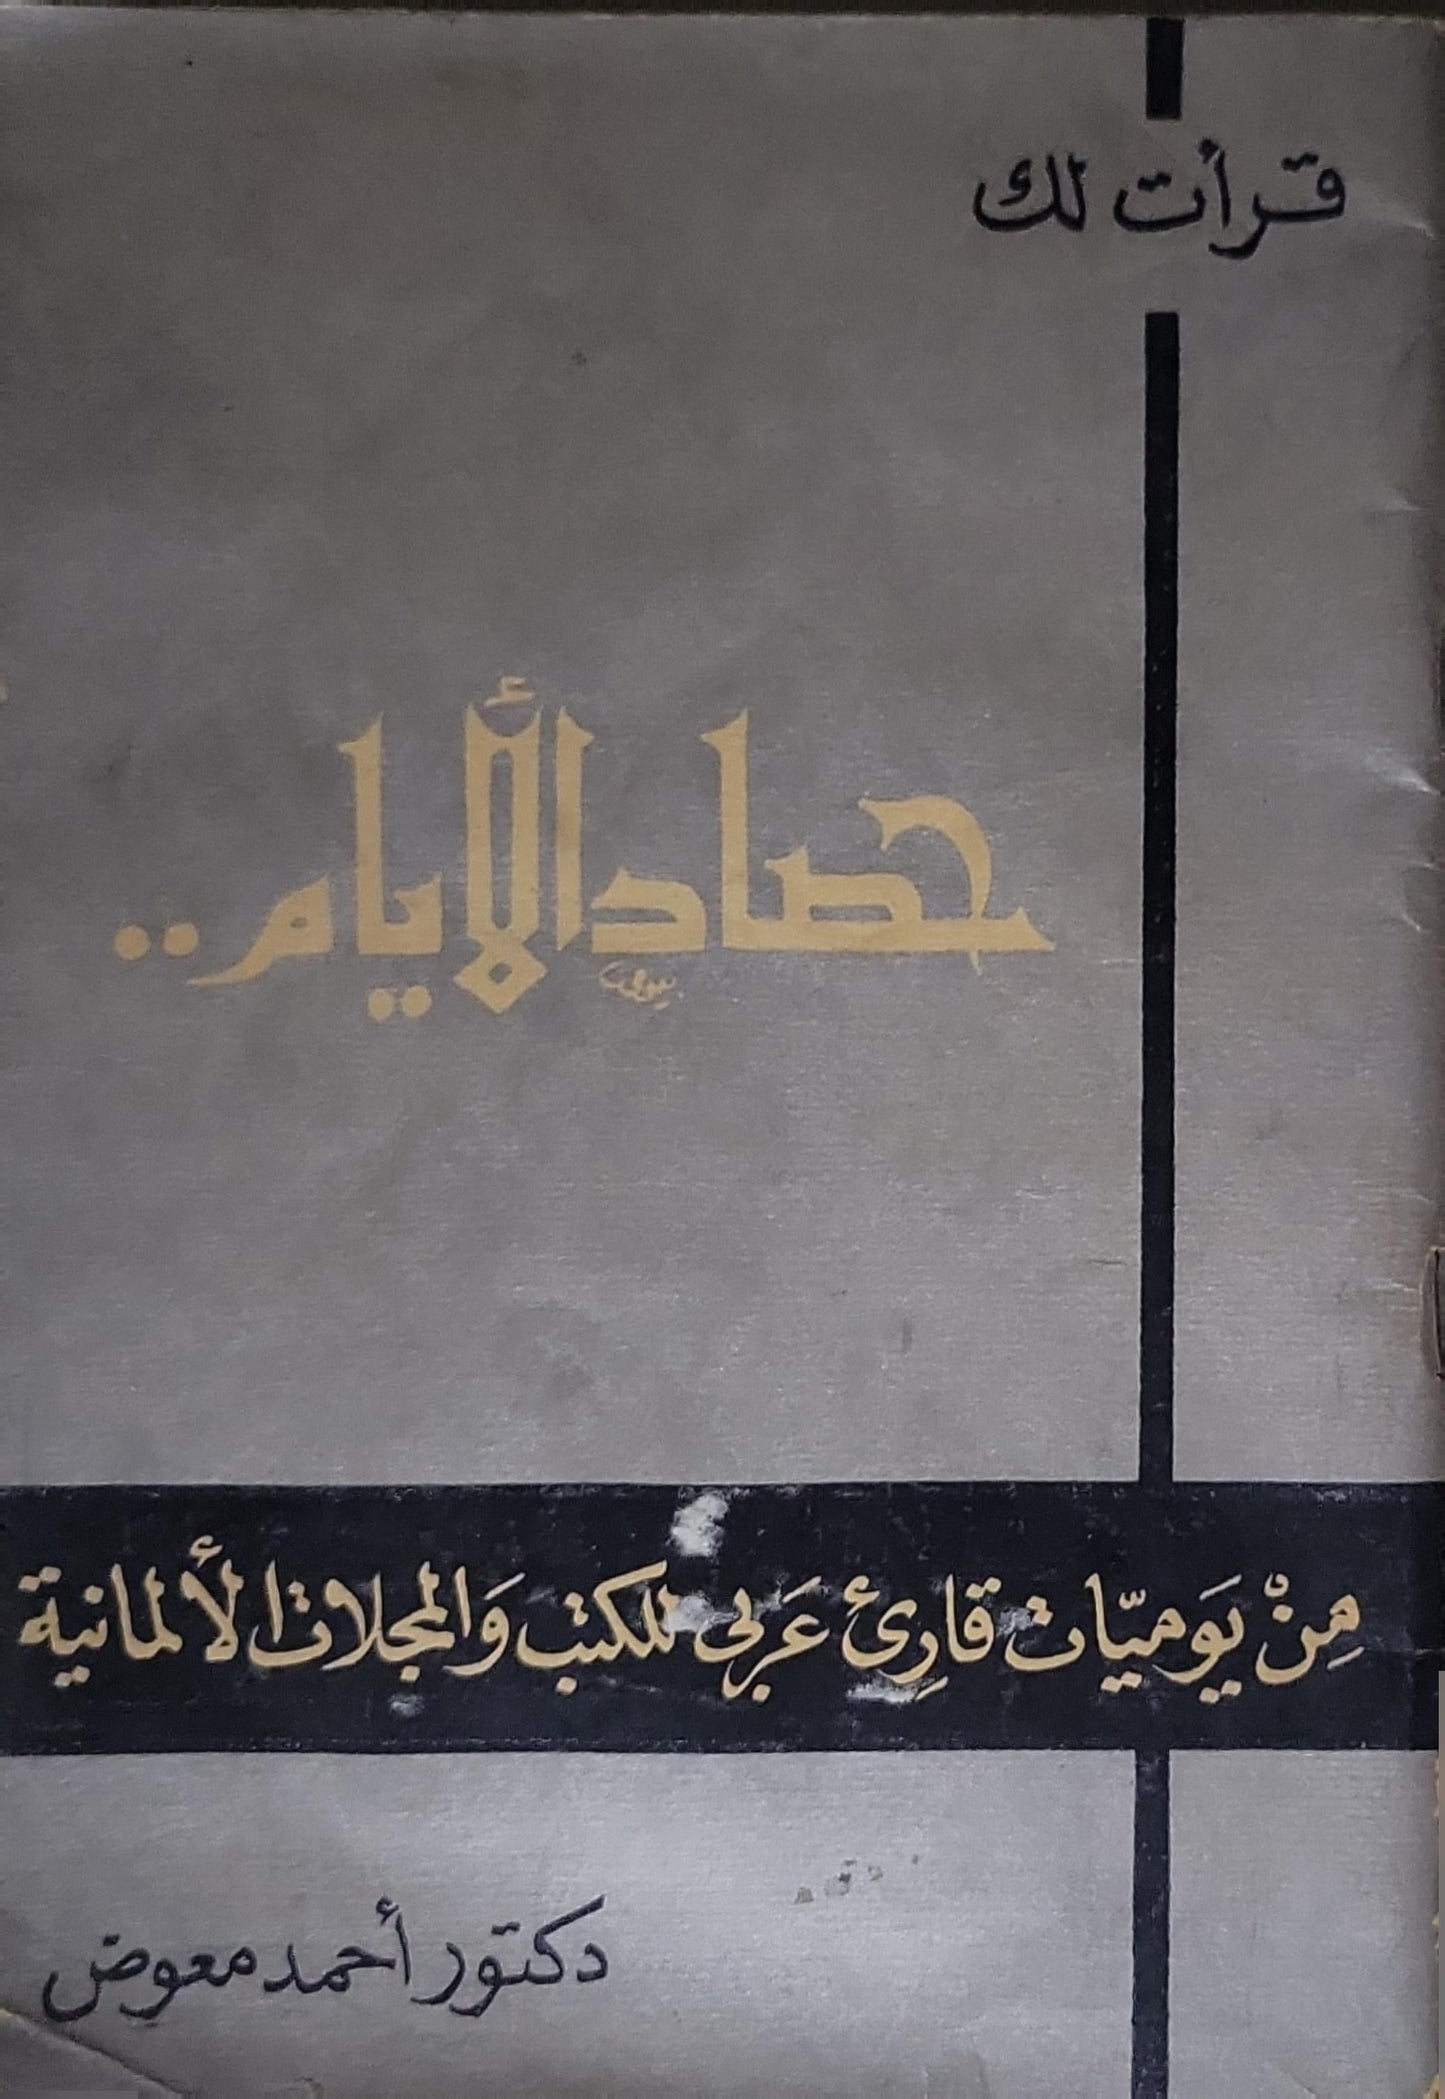 قرأت لك
حصاد الأيام..
مِنْ يَوميّات قارِئ عَربى للكتب وَالمجلات الألمانية
دكتور أحمد معوض